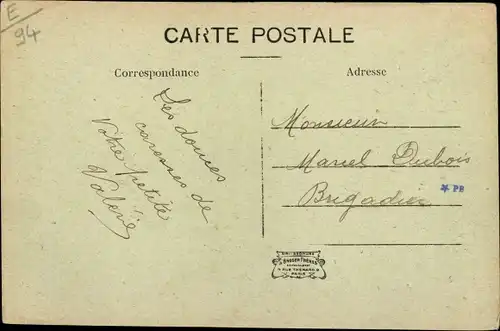 E
94
CARTE POSTALE
Correspondance
Les douces
caresses de
Votre petite
Valérie
Adresse
Monsieur
Marcel Dubois
Brigadier
* PB
PARIS